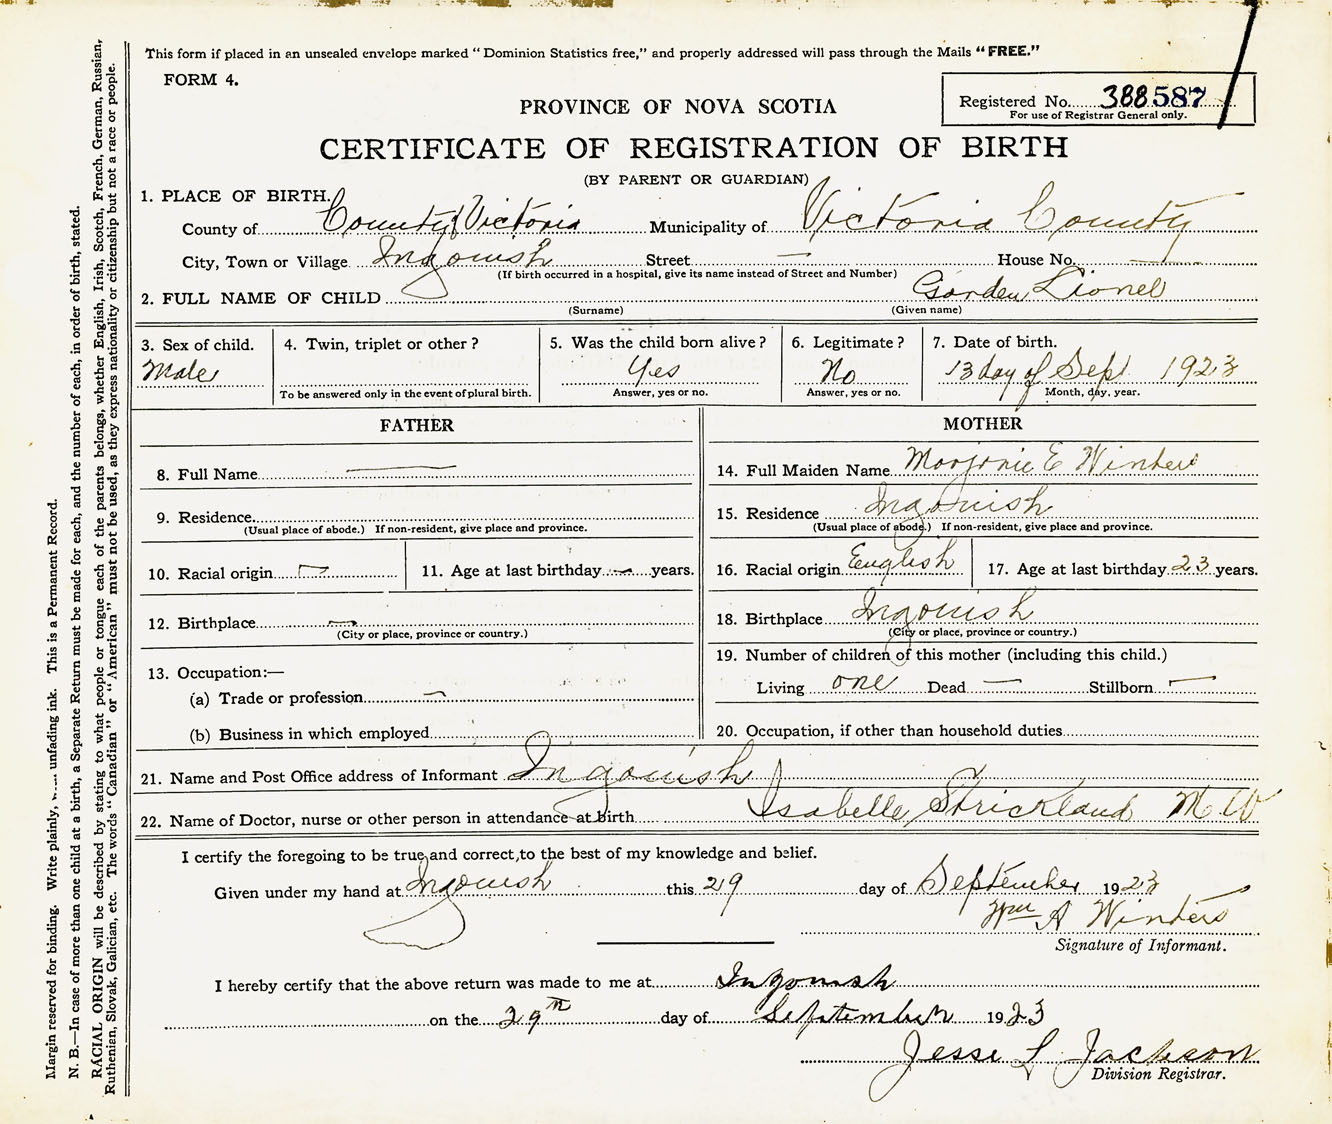 This form if placed in an unsealed envelope marked "Dominion Statistics free," and properly addressed will pass through the Mails "FREE."
FORM 4.
Registered No. 388587
For use of Registrar General only.
PROVINCE OF NOVA SCOTIA
CERTIFICATE OF REGISTRATION OF BIRTH
(BY PARENT OR GUARDIAN)
1. PLACE OF BIRTH.
County of County Victoria Municipality of Victoria County
City, Town or Village Ingonish Street — House No. —
(If birth occurred in a hospital, give its name instead of Street and Number)
2. FULL NAME OF CHILD Gorden Lionel
(Surname) (Given name)
3. Sex of child. 4. Twin, triplet or other? 5. Was the child born alive? 6. Legitimate? 7. Date of birth.
Male Yes No 13 day of Sept 1923
To be answered only in the event of plural birth. Answer, yes or no. Answer, yes or no. Month, day, year.
FATHER
8. Full Name —
9. Residence
(Usual place of abode.) If non-resident, give place and province.
10. Racial origin — 11. Age at last birthday — years.
12. Birthplace —
(City or place, province or country.)
13. Occupation:—
(a) Trade or profession —
(b) Business in which employed
MOTHER
14. Full Maiden Name Marjorie E Winters
15. Residence Ingonish
(Usual place of abode.) If non-resident, give place and province.
16. Racial origin English 17. Age at last birthday 23 years.
18. Birthplace Ingonish
(City or place, province or country.)
19. Number of children of this mother (including this child.)
Living one Dead — Stillborn —
20. Occupation, if other than household duties
21. Name and Post Office address of Informant Ingonish
22. Name of Doctor, nurse or other person in attendance at birth Isabelle Strickland M W
I certify the foregoing to be true and correct, to the best of my knowledge and belief.
Given under my hand at Ingonish this 29 day of September 1923
Wm A Winters
Signature of Informant.
I hereby certify that the above return was made to me at Ingonish
on the 29th day of September 1923
Jesse L Jackson
Division Registrar.
Margin reserved for binding. Write plainly, unfading ink. This is a Permanent Record.
N. B.—In case of more than one child at a birth, a Separate Return must be made for each, and the number of each, in order of birth, stated.
RACIAL ORIGIN will be described by stating to what people or tongue each of the parents belongs, whether English, Irish, Scotch, French, German, Russian,
Ruthenian, Slovak, Galician, etc. The words "Canadian" or "American" must not be used, as they express nationality or citizenship but not a race or people.